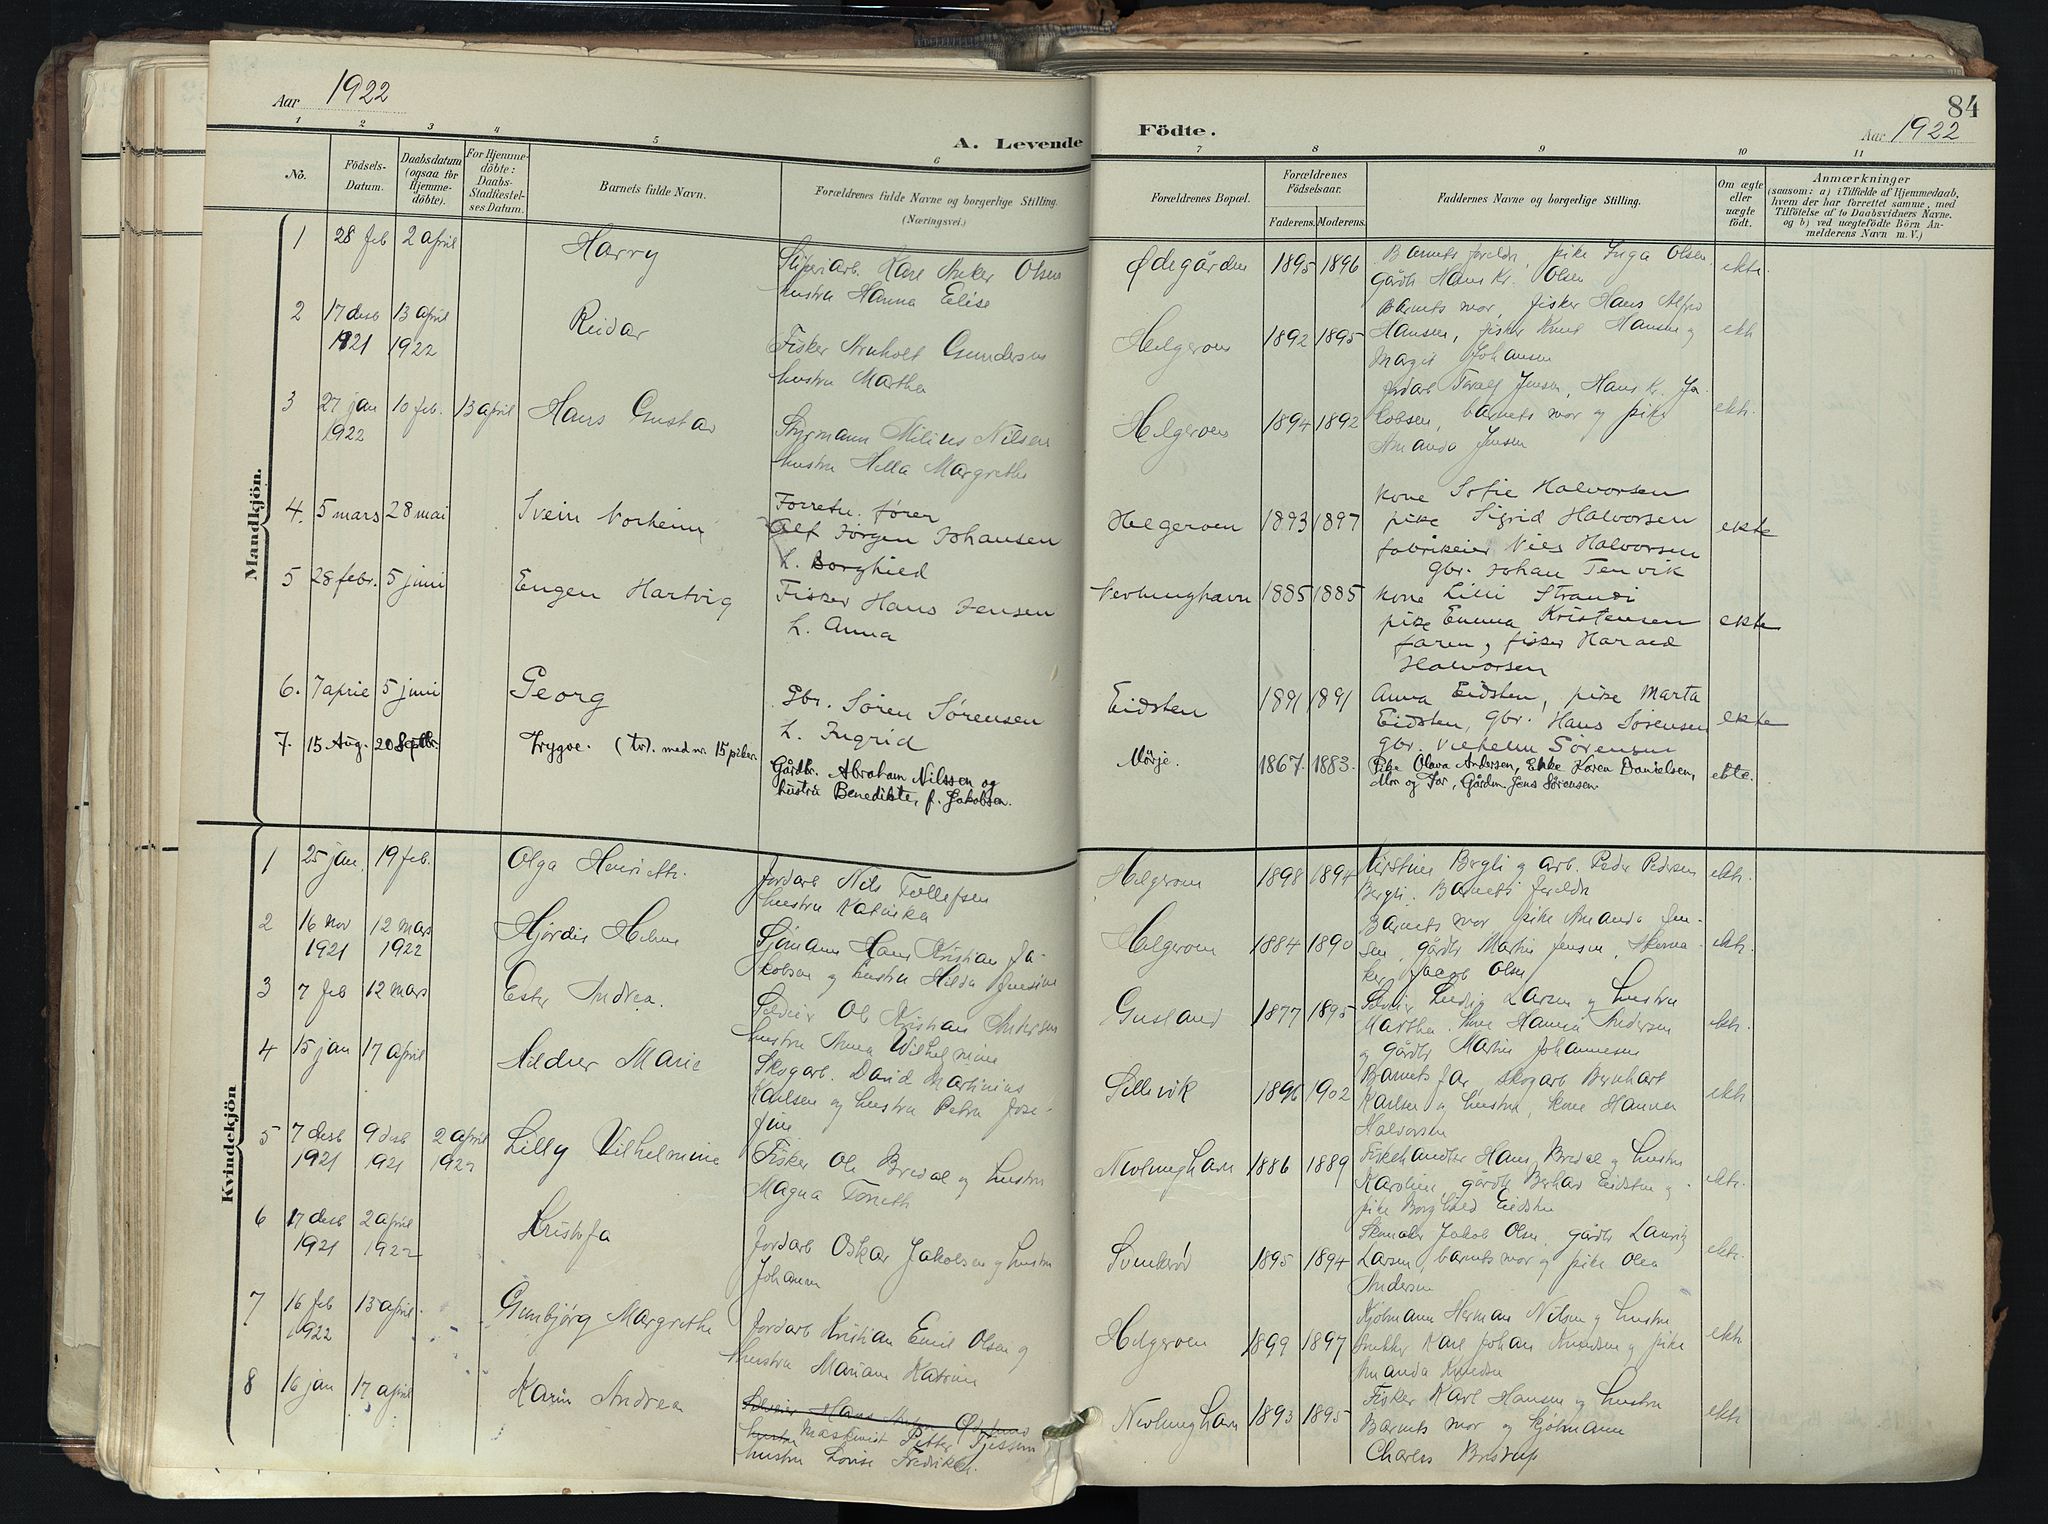 Aar 1922
A. Levende Födte.
84
Aar 1922
1 2 3 4 5 6 7 8 9 10 11
No.
Födsels-Datum.
Daabsdatum (ogsaa for Hjemme-döbte).
For Hjemme-döbte: Daabs-Stadfæstel-ses Datum.
Barnets fulde Navn.
Forældrenes fulde Navne og borgerlige Stilling. (Næringsvei.)
Forældrenes Bopæl.
Forældrenes Födselsaar.
Faderens. Moderens.
Faddernes Navne og borgerlige Stilling.
Om ægte eller uægte födt.
Anmærkninger
(saasom: a) i Tilfælde af Hjemmedaab, hvem der har forrettet samme, med Tilföielse af to Daabsvidners Navne. og b) ved uægtefödte Börn An-melderens Navn m. V.)
Mandkjön.
1 28 feb 2 april Harry
Karl Anker Olsen
hustru Hanna Elise
Ødegården 1895 1896
Barnets foreldre, pike Inga Olsen
Gårdb Hans Kr. Olsen
ekte.
2 17 desb 1921 13 april 1922 Reidar
Fisker Arnholt Gundersen
hustru Martha
Helgeroen 1892 1895
Barnets mor, fisker Hans
Hansen, fisker Hansen og
Margit Johansen
ekte
3 27 jan 1922 10 feb. 13 april Hans Gustav
Styrmann Milius Nilsen
hustru Hella Margrethe
Helgeroen 1894 1892
Jordarb Toralf Jensen, Hans K. Ja-
kobsen, barnets mor og pike
Amanda Jensen
ekte.
4. 5 mars 28 mai Svein Norheim
Forretn. fører
Alf Jørgen Johansen
h. Borghild
Helgeroen 1893 1897
kone Sofie Halvorsen
pike Sigrid Halvorsen
fabrikeier Niels Halvorsen
gbr. Johan Tenvik
ekte
5 28 febr. 5 juni Eugen Hartvig
Fisker Hans Jensen
h. Anna
Nevlunghavn 1885 1885
kone Lilli Strandi
pike Emma Kristensen
faren, fisker Harald
Halvorsen
ekte
6. 7 april 5 juni Georg
Gbr. Søren Sørensen
h. Ingrid
Eidsten 1891 1891
Anna Eidsten, pike Marta
Eidsten, gbr. Hans Sørensen
gbr. Vilhelm Sørensen
ekte
7. 15 Aug. 20 Septbr. Trygve. (tv). med nr. 15 piker.
Gårdbr. Abraham Nilssen og
hustru Benedikte, f. Jakobsen.
Mörje. 1867. 1883.
Pike Olava Andersen, Enke Karen Danielsen,
Mor og Far, Gårdm. Jens Sørensen.
ekte.
Kvindekjön
1 25 jan 19 feb. Olga Henriette.
Jordarb Nils Tollefsen
hustru Katinka
Helgeroen 1898 1894
Kirstine Bergli og arb. Peder Pedersen
Bergli. Barnets foreldre
ekte.
2 16 nov 1921 12 mars 1922 Hjørdis Helene
Sjömann Hans Kristian Ja-
kobsen og hustru Hilda
Helgeroen 1884 1890
Barnets mor pike Amanda Jen-
sen, gårdb Martin Jensen, Skoma-
ker Jacob Olsen
ekte.
3 7 feb 12 mars Ester Andrea.
Selveier Ole Kristian Andersen
hustru Anna Wilhelmine
Gusland 1877 1895
Selveier Ludvig Larsen og hustru
Martha. kone Hanna Andersen
og gårdb Martin Johannesen
ekte.
4 15 jan 17 april Hildur Marie
Skogarb. David Martinius
Karlsen og hustru Petra Jose-
fine
Sillevik 1896 1902
Barnets far, skogarb Bernhart
Karlsen og hustru, kone Hanna
Halvorsen
ekte
5 7 desb 1921 9 desb 1921 2 april 1922 Lilly Vilhelmine
Fisker Ole Bredal og hustru
Magna Torieth
Nevlunghavn 1886 1889
Fiskehandler Hans Bredal og hustru
Karoline, gårdb Berhard Eidsten og
pike Borghild Eidsten
ekte.
6 17 desb 1921 2 april 1922 Kristofa
Jordarb Oskar Jakobsen og hustru
Johanne
1895 1894
Skomaker Jakob Olsen, gårdb Lauritz
Larsen, barnets mor og pike Olea
Andersen
ekte.
7 16 feb 1922 13 april Gunbjørg Margrethe
Jordarb Kristian Emil Olsen og
hustru Mariam Katrine
Helgeroen 1899 1897
Sjömann Herman Nilsen og hustru
Snekker Karl Johan Knudsen og pike
Amanda Knudsen
ekte
8 16 jan 17 april Karin Andrea
Selveier Hans Anton
hustru Maskinist Petter
hustru Lovise Fredrikke.
Nevlunghavn 1893 1895
Fisker Karl Hansen og hustru
Barnets mor og Sjömann
Charles Bristrup
ekte